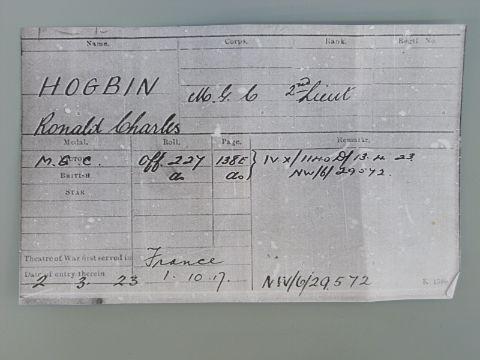 Name. Corps. Rank. Regtl. No.
HOGBIN M.G.C 2nd Lieut
Ronald Charles
Medal. Roll. Page. Remarks.
VICTORY Off. 227 138E } IV X/1140D/13.4.23
BRITISH do do } NW/6/29572.
STAR
Theatre of War first served in France
Date of entry therein 1.10.17.
2 3. 23 NW/6/29572